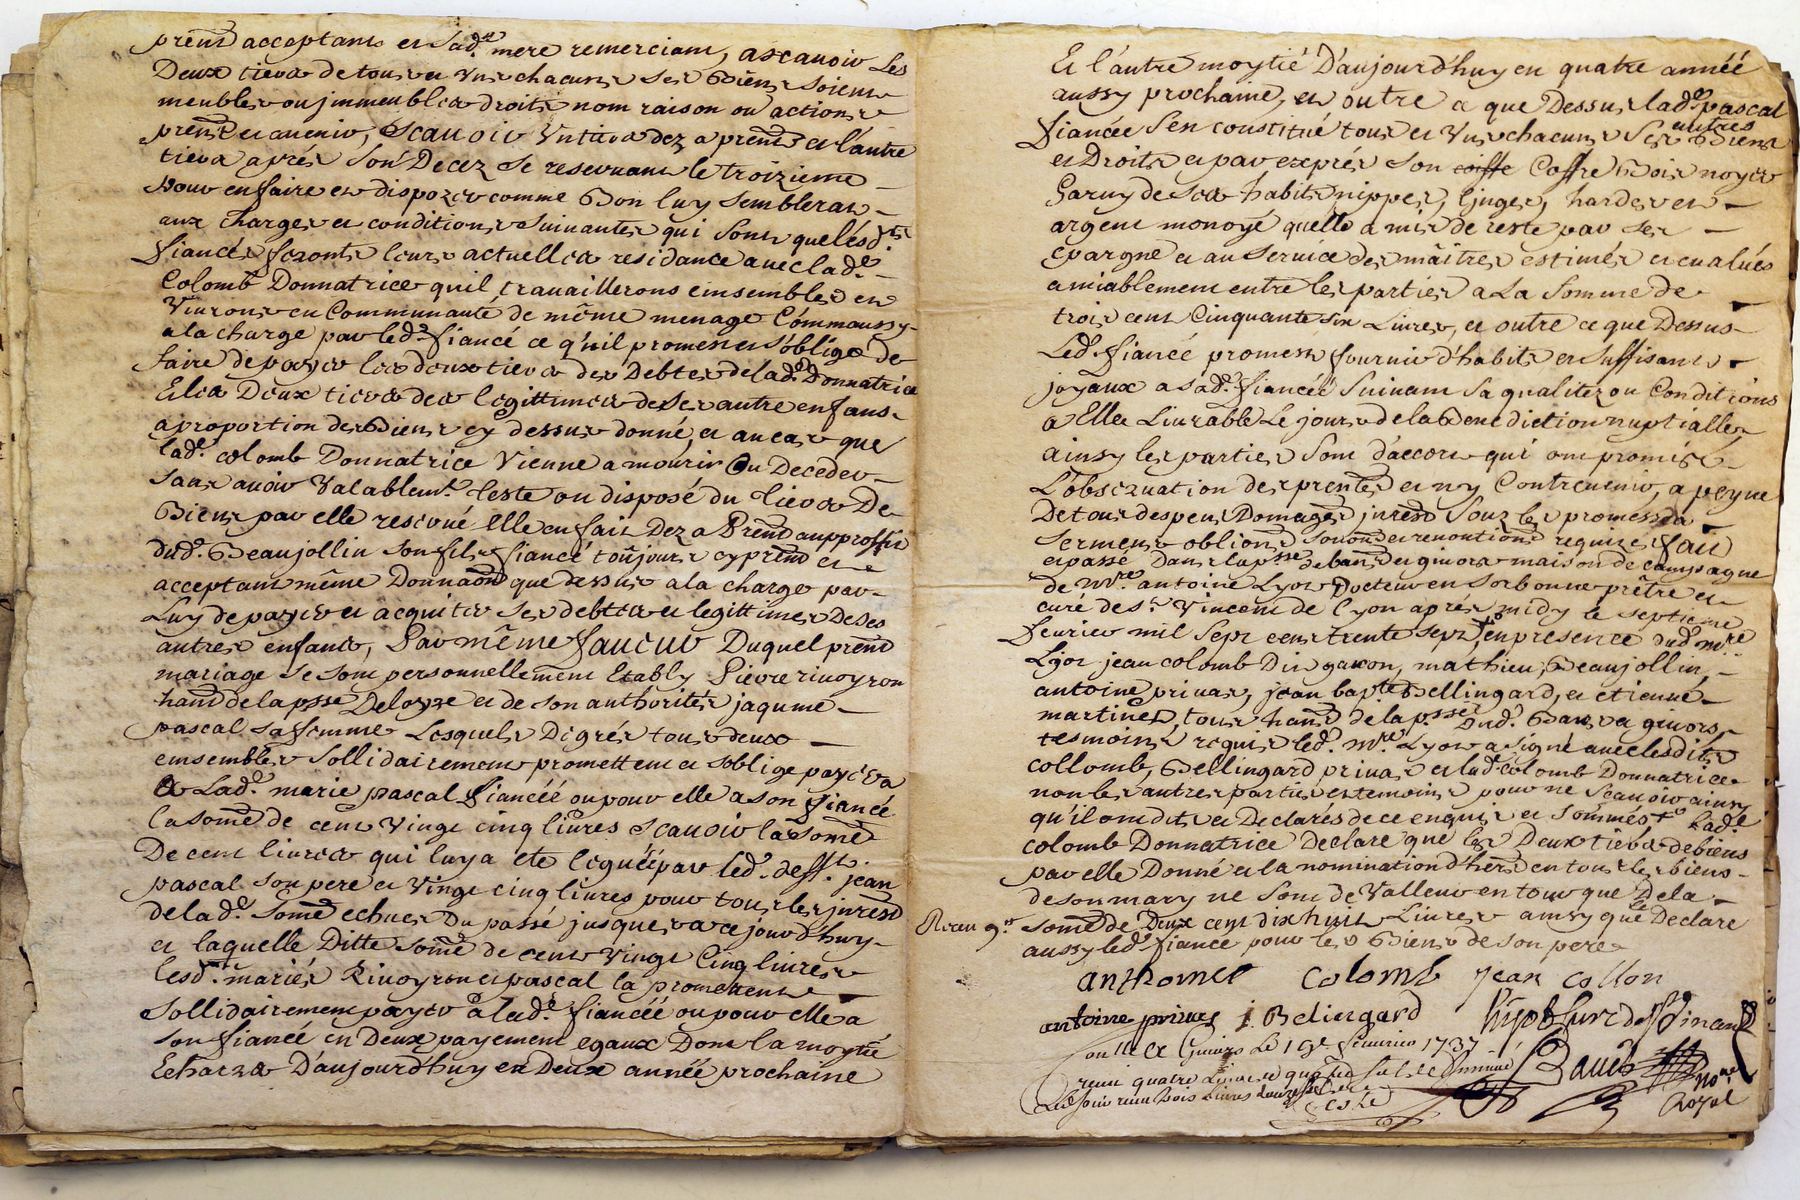 prent acceptant et Sad.e mere remerciant, ascavoir Les
Deux tiers de tous et Uns chacuns Ses Biens soient
meubles ou jmmeubles droits nom raison ou actions
prents et avenir, Scavoir Un tiers dez a prent et l'autre
tiers aprés Son Decez Se reservant le troizieme
pour en faire et dispozer comme Bon luy Semblerat
aux charges et conditions Suivantes qui Sont que lésd.ts
fiancés feront leurs actuelles residance avec lad.e
Colomb Donnatrice quil travaillerons einsembles en
Vivront en Communauté de même menage Commaussy
a la charge par led.t fiancé ce qu'il promest et s'oblige de
faire de payer les deux tiers des Debtes de lad.e Donnatrice
Et les Deux tiers des legittimes de Ses autre enfans
a proportion des Biens cy dessus donné, et au cas que
lad.e colomb Donnatrice Vienne a mourir Ou Deceder
sans avoir Valablem.t teste ou disposé du tiers De
Biens par elle reservé Elle en fait Dez a Prent au proffit
dud.t Beaujollin son fils fiance toûjours cy prent et
acceptant même Donnaon que dessus a la charge par
Luy de payer et acquiter Ses debtes et legittimes De Ses
autres enfants, Par même faveur Duquel prent
mariage Se Sont personnellement Etably Pierre rivoyron
hant de la psse Deloyse et de son authorités jaqume
pascal sa femme Lesquels De grés tous deux
einsembles Sollidairement promettent et s'oblige payer
a Lad.e marie pascal fiancéé ou pour elle a son fiancé
la some de cent Vingt cinq livres Scavoir la some
De cent livres qui luy a ete leguéé par led.t deff.t jean
pascal son pere et Vingt cinq livres pour tous les jnrests
de lad.e Some echues Du passé jusques a ce jourd'huy
et laquelle Ditte some de cent Vingt Cinq livres
lesd.t mariés Rivoyron et pascal la promettent
Sollidairement payer a lad.e fiancéé ou pour elle a
son fiancé en Deux payement egaux Dont la moytié
Echerra D'aujourd'huy en Deux annéé prochaine
Et l'autre moytié D'aujourd'huy en quatre annéé
aussy prochaine, et outre ce que Dessus lad.e pascal
fiancée S'en constitué tous et Uns chacuns Ses autres Biens
et Droits et par exprés Son coiffe Coffre Bois noyer
Garny de Ses habits nippes, linges, hardes et
argent monoyé quelle a mis de reste par Ses
Epargne et au Service des maîtres estimés et evalués
amiablement entre les parties a La Somme de
trois cent Cinquante six Livres, et outre ce que Dessus
Led.t fiancé promest fournir d'habits et Suffisants
joyaux a Sad.e fiancéé Suivant Sa qualitéz ou Conditions
a Elle Livrable Le jours de la Benediction nuptialle,
ainsy les parties Sont d'accors qui ont promise
L'observation des prentes et n'y Contrevenir, a peyne
De tous despens Domages jnrests Sous les promesses
Serment obliond Soumond et renontiond requise fait
et passé Dans la psse de bans et givors maison de campagne
de Mre antoine Lyon Docteur en Sorbonne prêtre et
curé de St Vincent de lyon aprés midy le Septieme
fevrier mil Sept cent trente Sept, en presence dud.t Mre
Lyon jean colomb Dit garcon, mathieu Beaujollin,
antoine privas, jean bapte Bellingard, et etienne
martinet, tous hant de la psse Dud.t Bans et givors
tesmoins requis led.t Mre Lyon a signé avec lesdits
collomb, Bellingard privas et lad.e colomb Donnatrice
non les autres parties et temoins pour ne Scavoir ainsy
qu'il ont dits et Declarés de ce enquis et Sommés lad.e
colomb Donnatrice declare que les Deux tiers de biens
par elle Donné et la nomination d'heret en tous les biens
de son mary ne Sont de Valleur en tout que De la
Receu 9.
somme de Deux cent dix huit Livres ainsy que le Declare
aussy led.t fiancé pour les Biens de son pere
anthomet Colomb jean collon
antoine privas j. Belingard
Coulle a Givors Le 19e feuvrier 1737
receu quatre Livres
Bauer
Noe
Royal